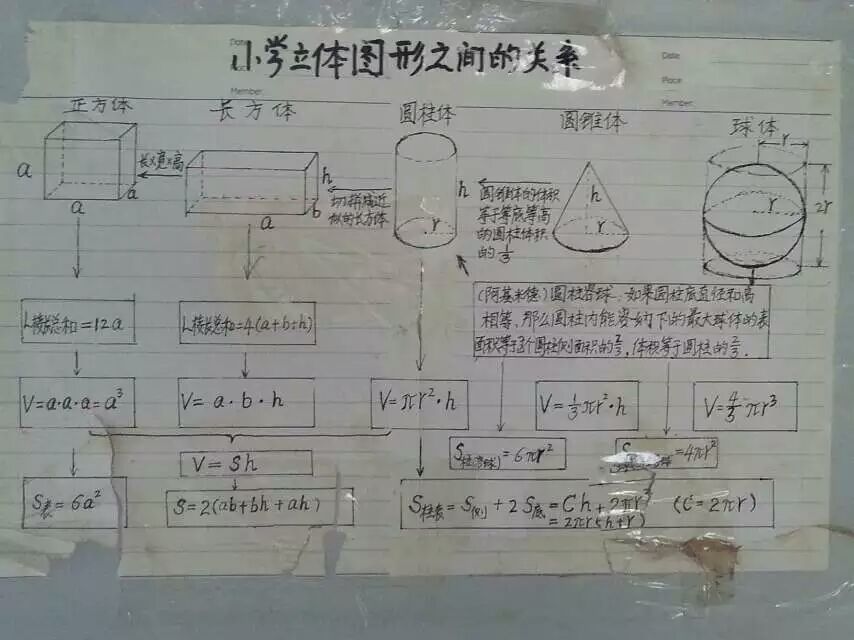 小学立体图形之间的关系
Date
Member
Date
Place
Member
正方体
长方体
圆柱体
圆锥体
球体
a
a
a
长×宽×高
h
b
a
切拼成近
似的长方体
h
r
圆锥体的体积
等于等底等高
的圆柱体积
的1/3
h
r
r
r
2r
(阿基米德)圆柱容球.如果圆柱底直径和高
相等,那么圆柱内能容纳下的最大球体的表
面积等于这个圆柱侧面积的2/3,体积等于圆柱的2/3.
L棱长总和=12a
L棱长总和=4(a+b+h)
V=a·a·a=a³
V=a·b·h
V=πr²·h
V=1/3πr²·h
V=4/3πr³
V=Sh
S柱(容球)=6πr²
=4πr²
S表=6a²
S=2(ab+bh+ah)
S柱表=S侧+2S底=Ch+2πr²
=2πr(h+r)
(C=2πr)